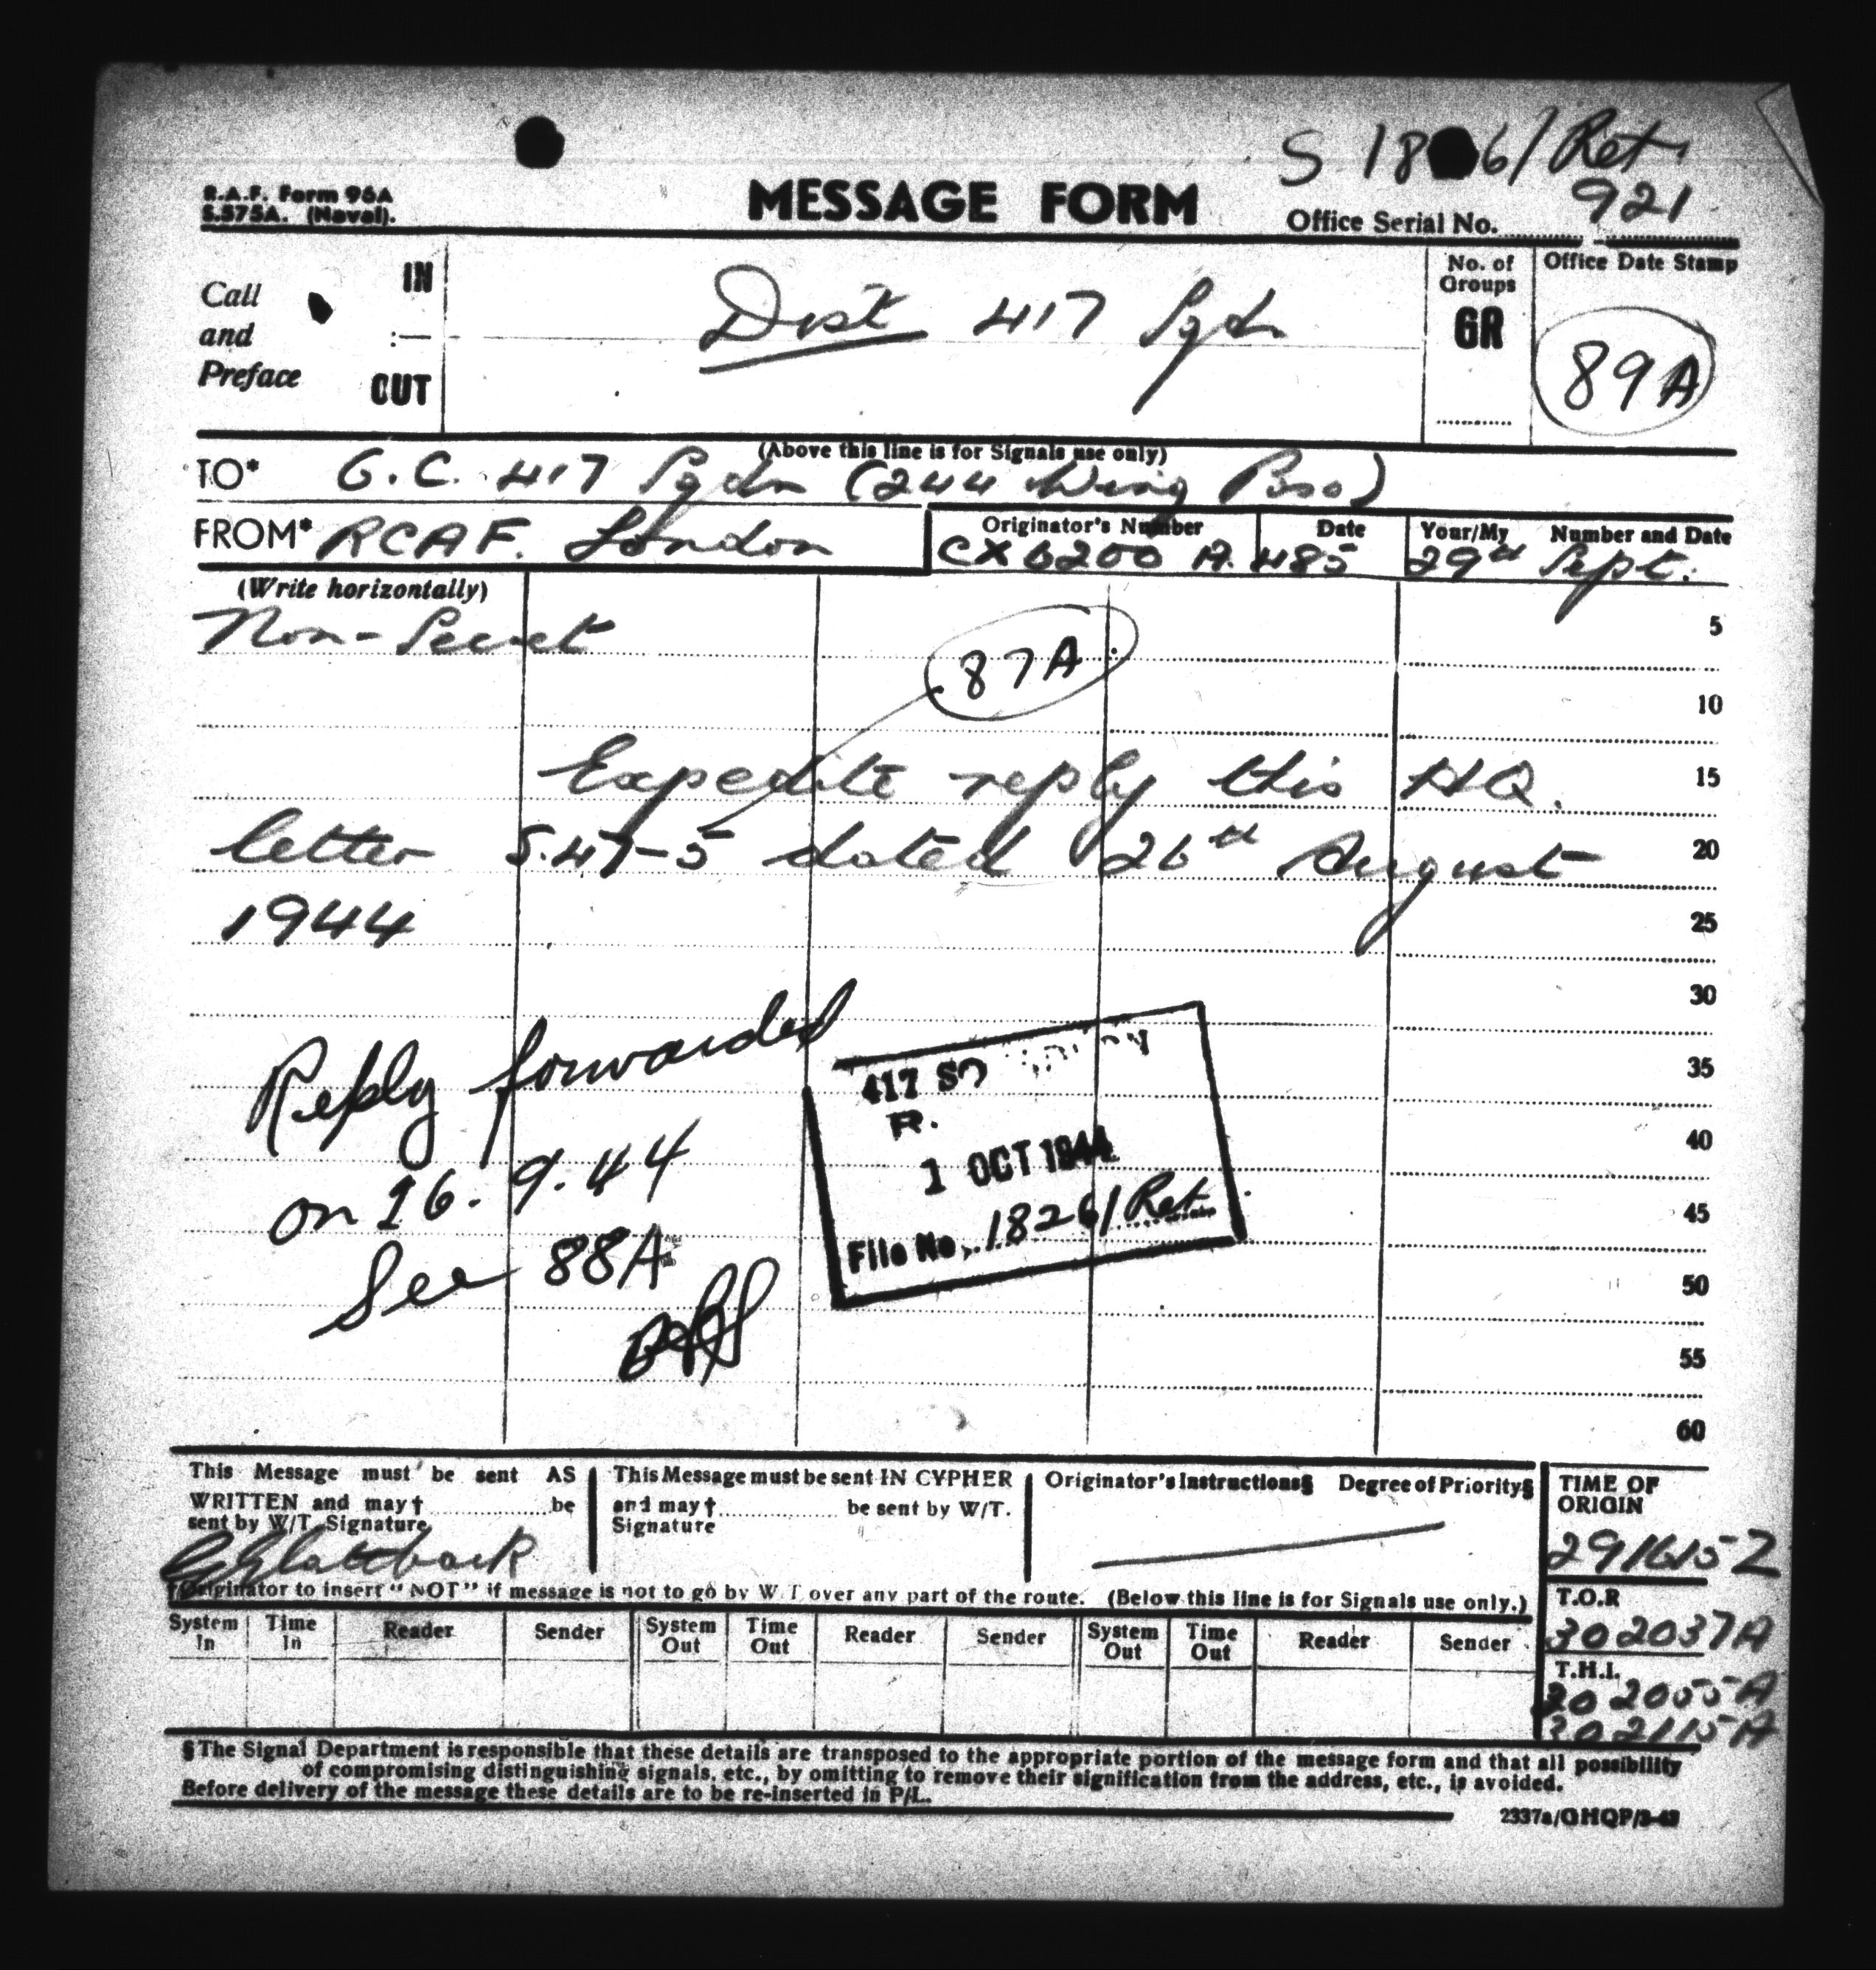 S 18 6/Ret.
R.A.F. Form 96A
S.575A. (Naval).
MESSAGE FORM
Office Serial No. 921
Call and Preface
IN
:—
OUT
Dist 417 Sqdn
No. of Groups
GR
Office Date Stamp
89A
(Above this line is for Signals use only)
TO* O.C. 417 Sqdn (244 Wing Poso)
FROM* RCAF. London
Originator's Number
CX6200 A.485
Date
Your/My Number and Date
29th Sept.
(Write horizontally)
Non-Secret
5
87A
10
Expedite reply this HQ. 15
letter S.47-5 dated 26th August 20
1944 25
30
Reply forwarded
on 16.9.44
See 88A
417 SQ
R.
1 OCT 1944
File No. 1826/Ret.
35
40
45
50
55
60
This Message must be sent AS
WRITTEN and may† be
sent by W/T. Signature
This Message must be sent IN CYPHER
and may† be sent by W/T.
Signature
Originator's Instructions§ Degree of Priority§
TIME OF
ORIGIN
291615Z
†Originator to insert "NOT" if message is not to go by W.T over any part of the route. (Below this line is for Signals use only.)
T.O.R
302037A
System In
Time In
Reader
Sender
System Out
Time Out
Reader
Sender
System Out
Time Out
Reader
Sender
T.H.I.
302055A
302115A
§ The Signal Department is responsible that these details are transposed to the appropriate portion of the message form and that all possibility
of compromising distinguishing signals, etc., by omitting to remove their signification from the address, etc., is avoided.
Before delivery of the message these details are to be re-inserted in P/L.
2337a/GHQP/3-43